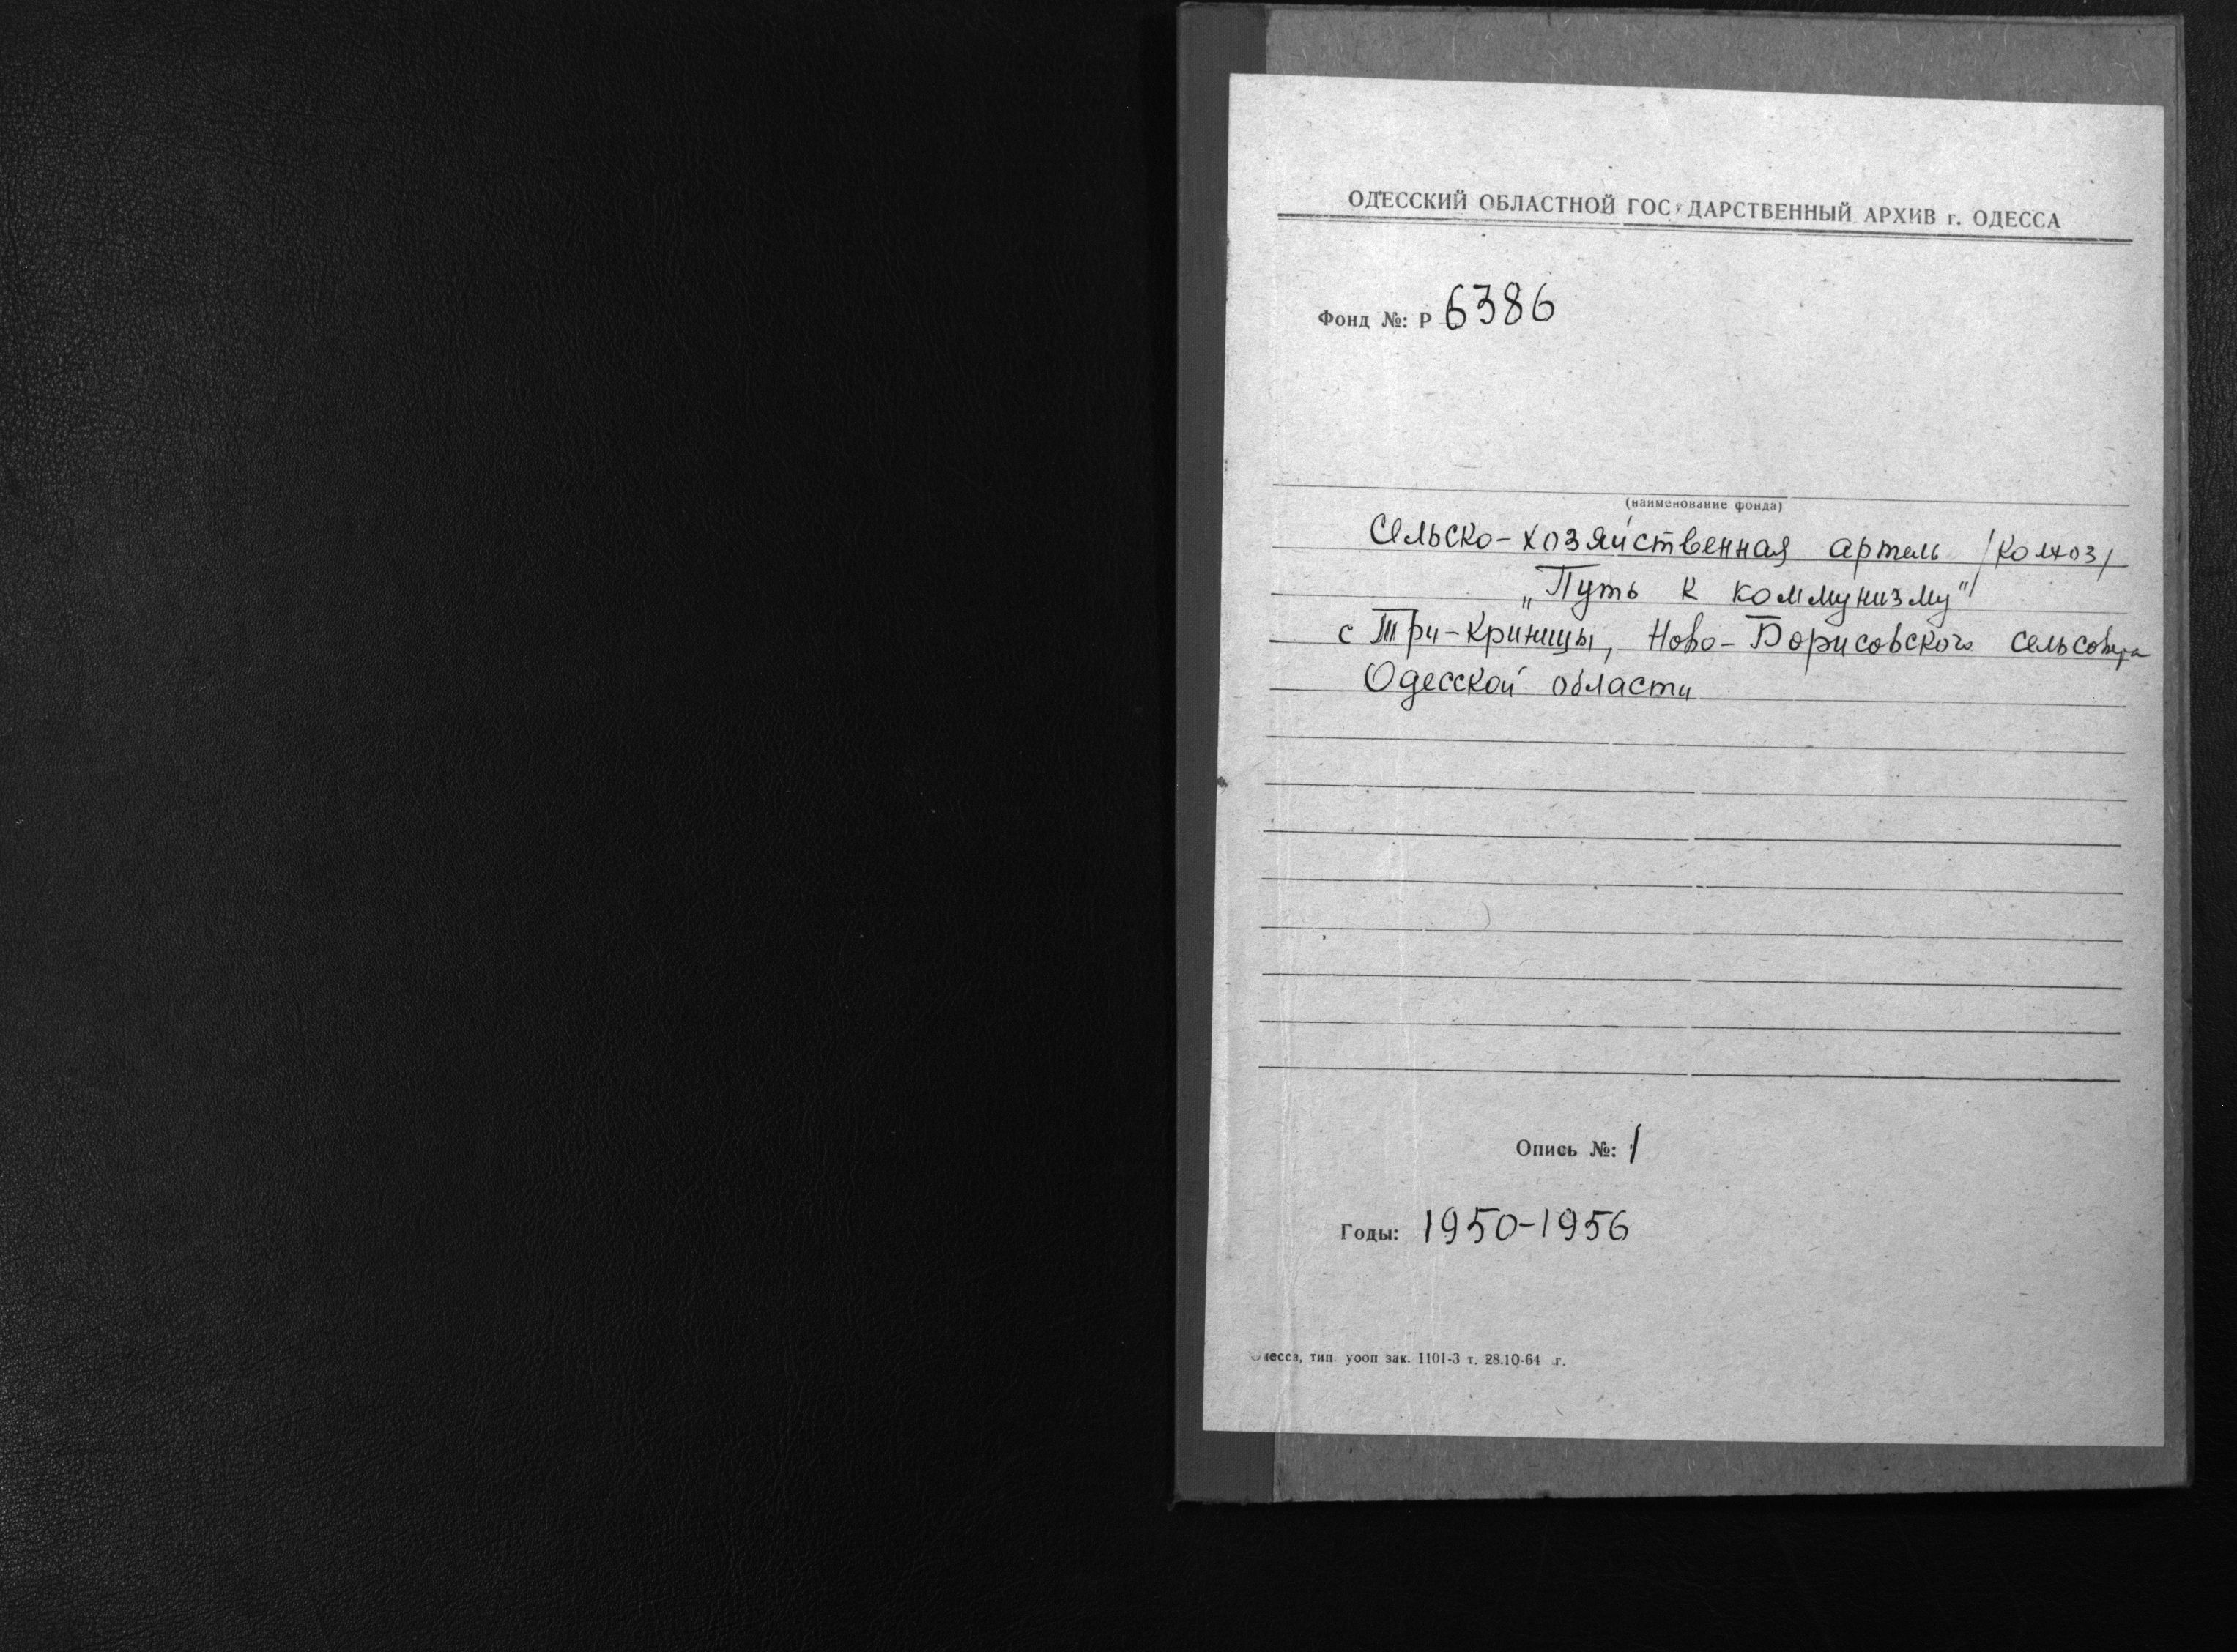 ОДЕССКИЙ ОБЛАСТНОЙ ГОСУДАРСТВЕННЫЙ АРХИВ г. ОДЕССА
Фонд №: Р 6386
(наименование фонда)
Сельско-хозяйственная артель /колхоз/
„Путь к коммунизму"
с Три-Криницы, Ново-Борисовского сельсовета
Одесской области
Опись №: 1
Годы: 1950-1956
Одесса, тип. уооп зак. 1101-3 т. 28.10-64 г.